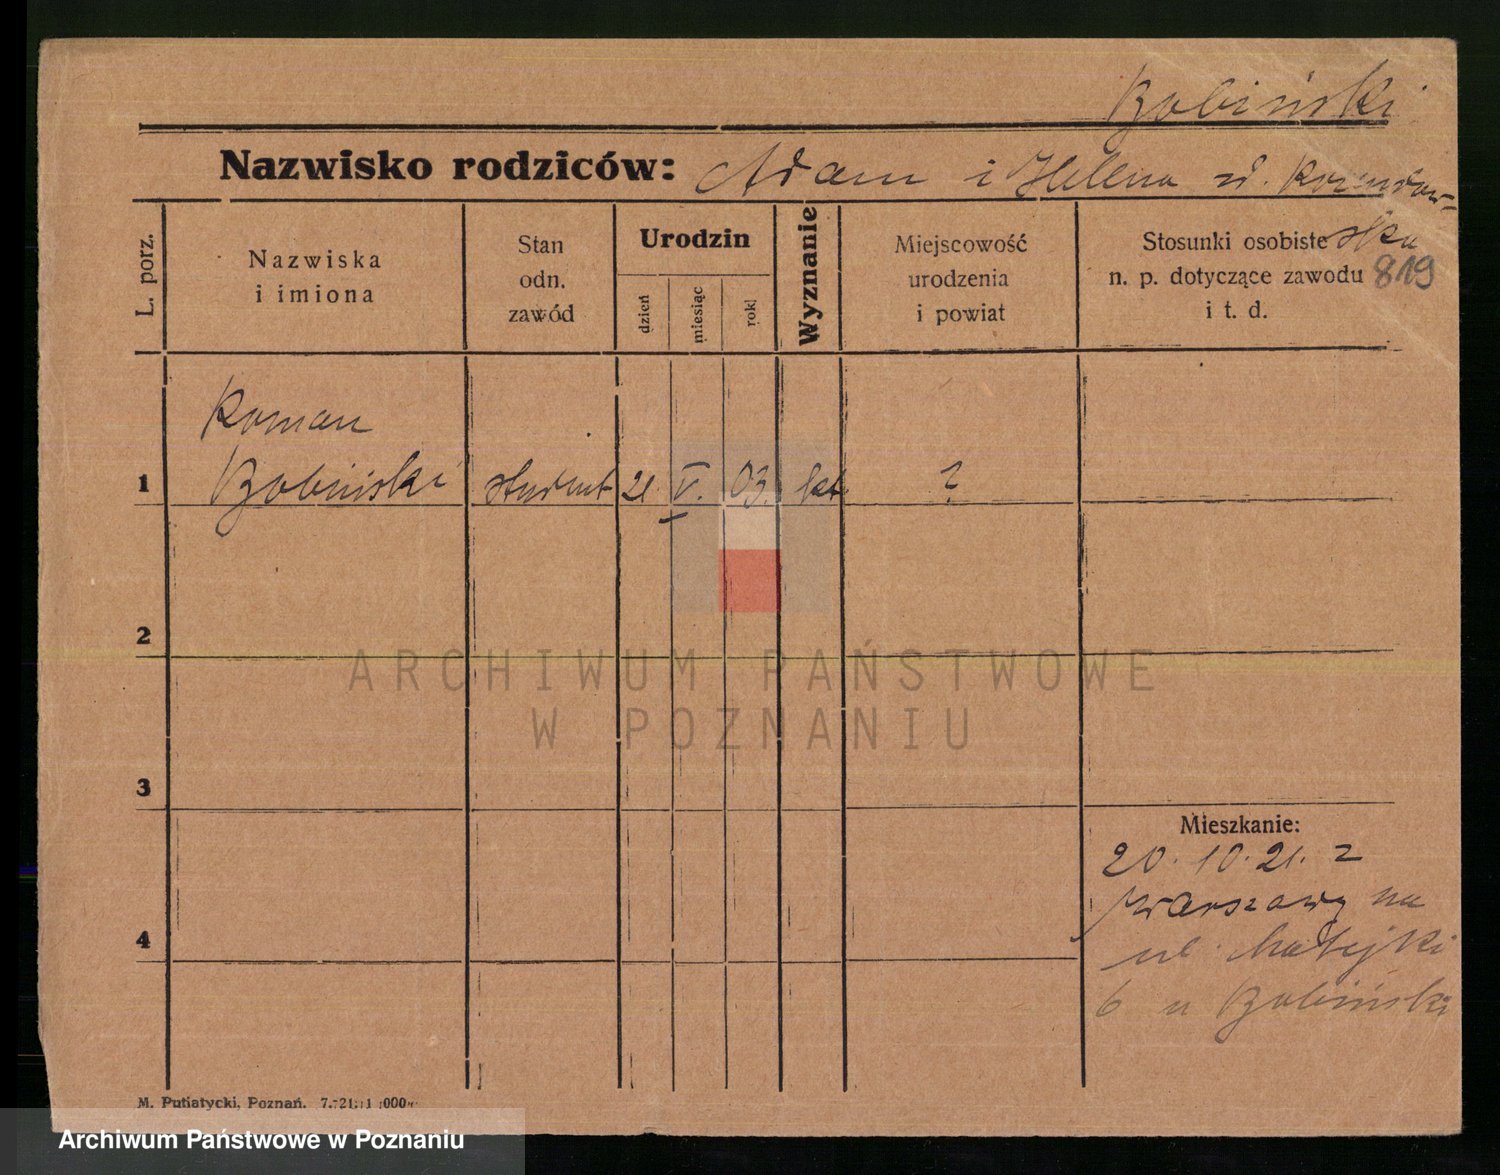 Bobiński
Nazwisko rodziców: Adam i Helena
L. porz.
Nazwiska
i imiona
Stan
odn.
zawód
Urodzin
dzień
miesiąc
rok
Wyznanie
Miejscowość
urodzenia
i powiat
Stosunki osobiste ska
n. p. dotyczące zawodu 819
i t. d.
Roman
1 Bobiński student 21 V. 03. kat ?
2
ARCHIWUM PAŃSTWOWE
W POZNANIU
3
Mieszkanie:
20. 10. 21. z
Warszawy na
4
ul. Matejki
6 u Bobiński
M. Putiatycki, Poznań. 7. 21. 1 000
Archiwum Państwowe w Poznaniu